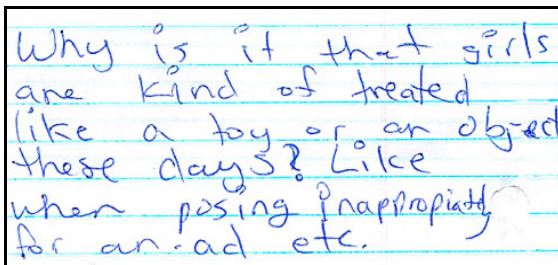 Why is it that girls
are kind of treated
like a toy or an object
these days? Like
when posing inappropiatly
for an ad etc.